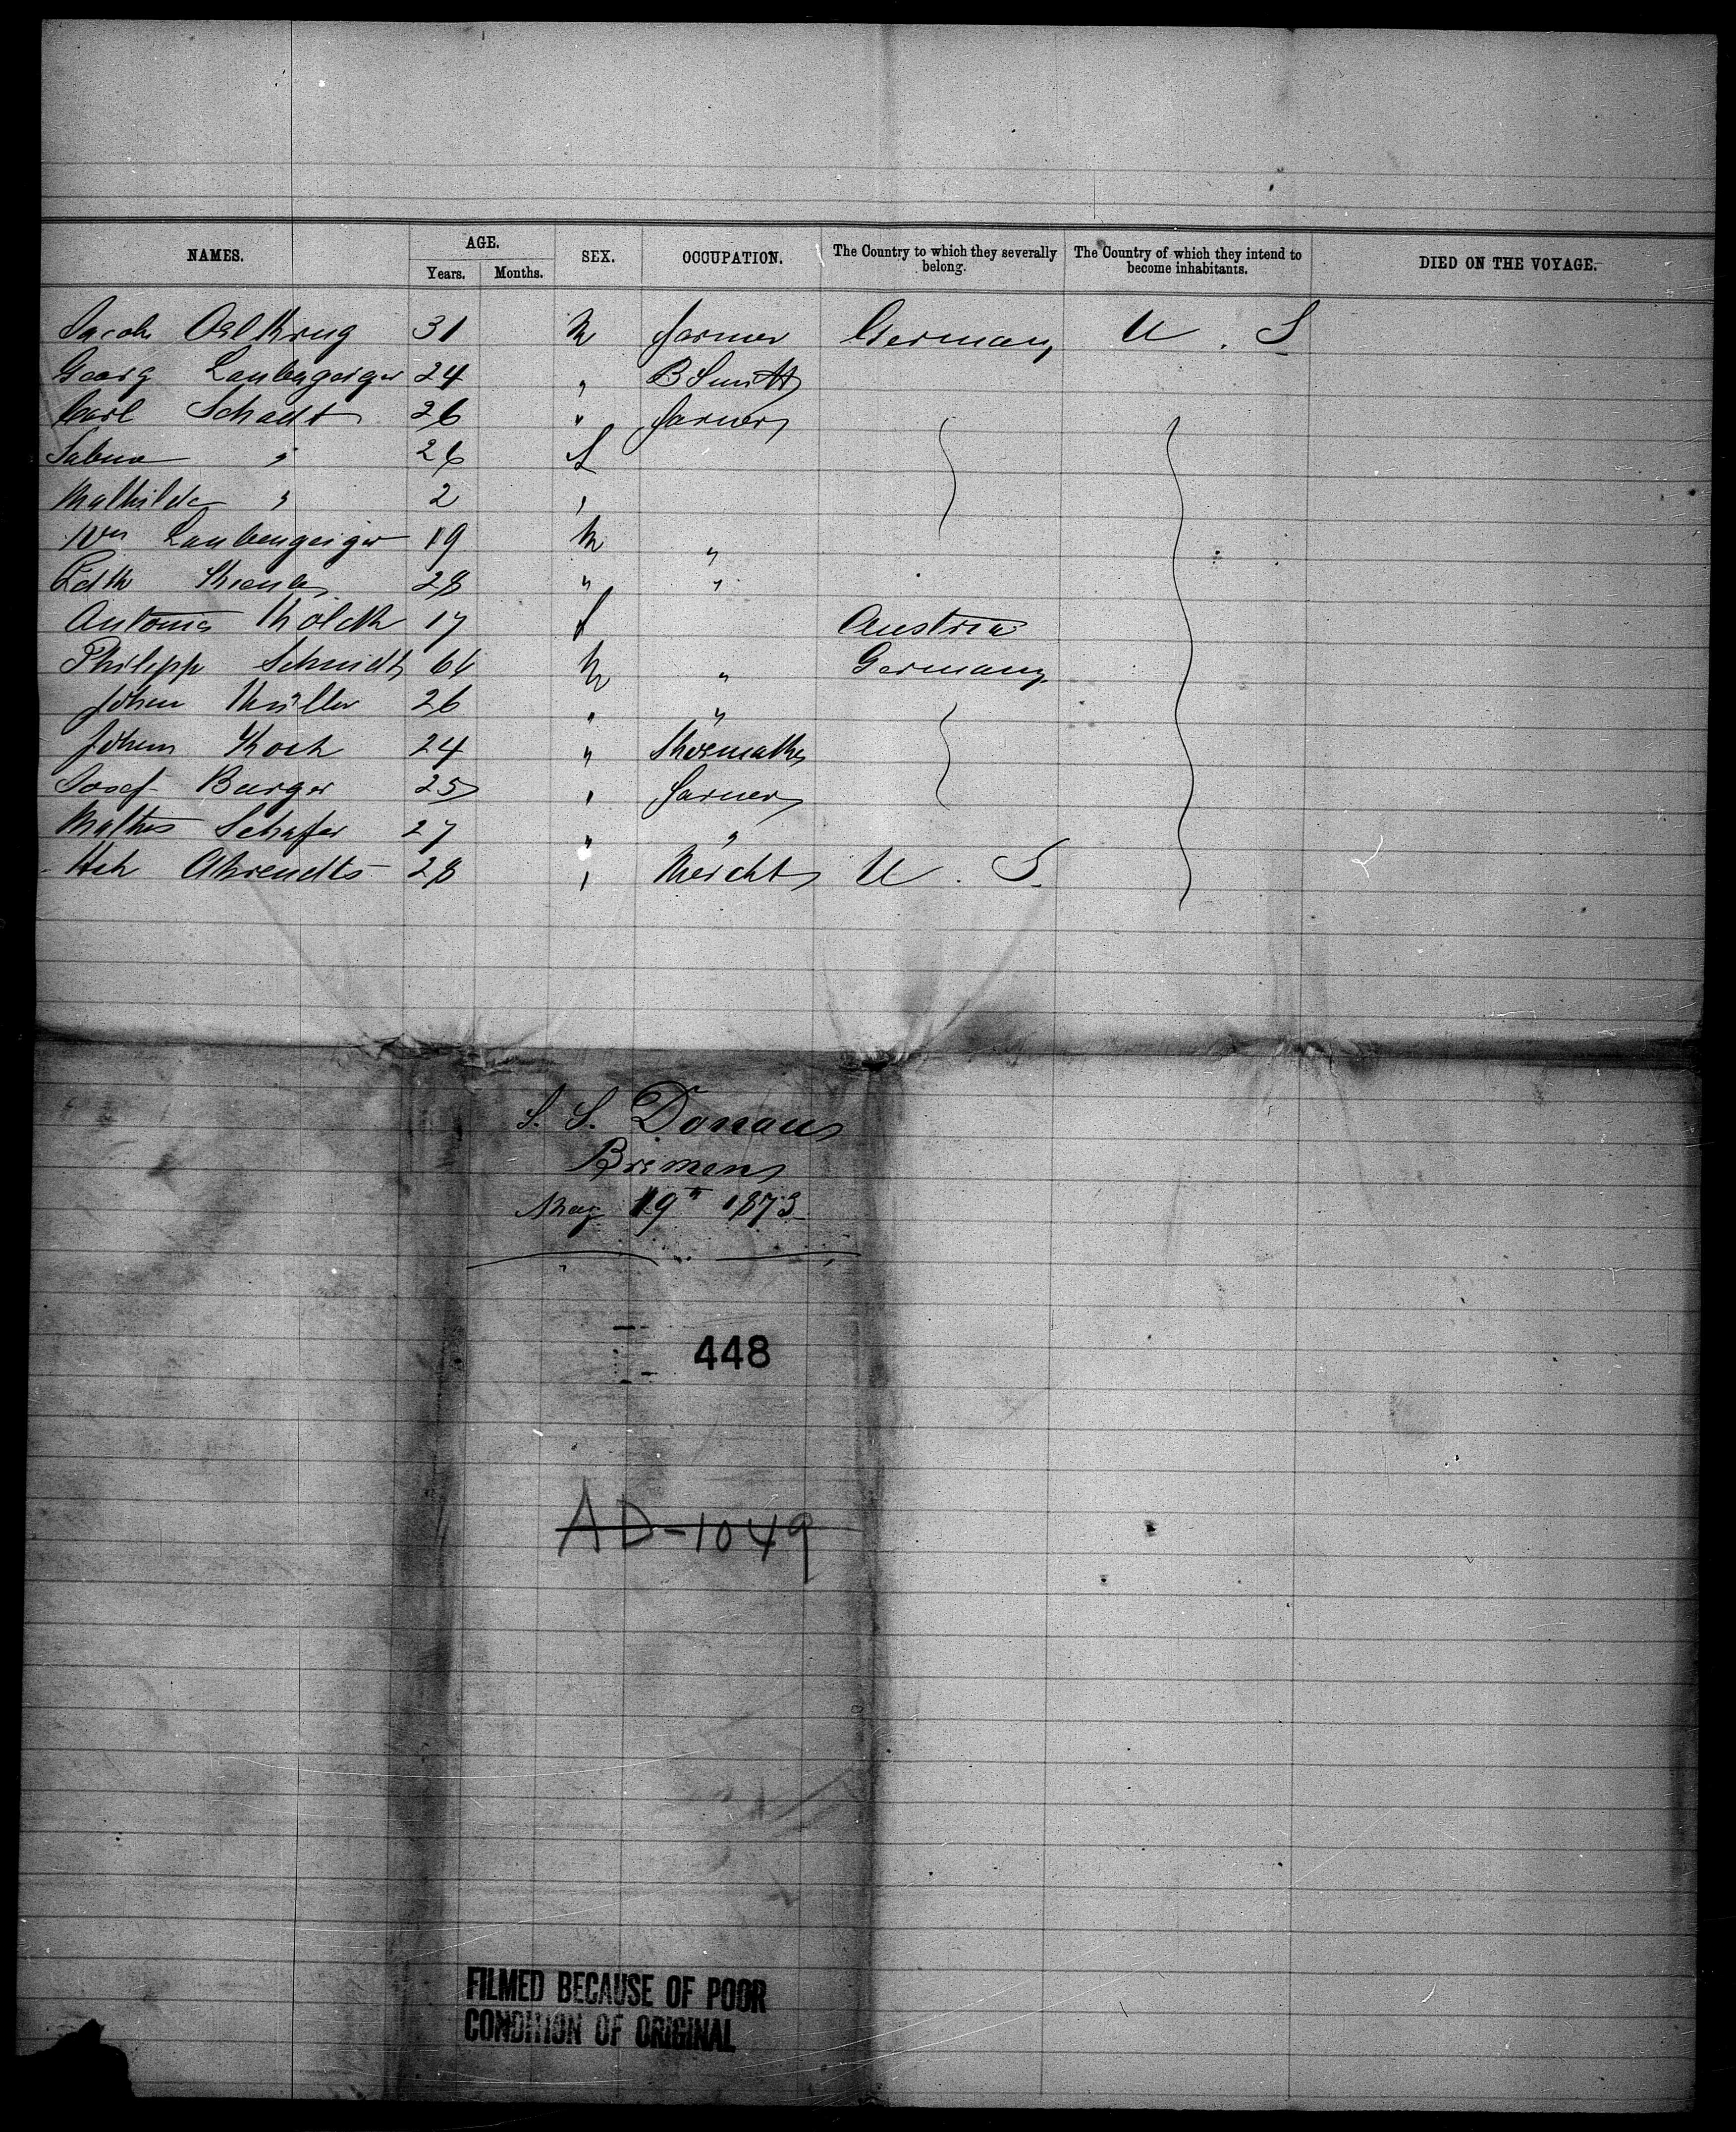 NAMES. AGE. SEX. OCCUPATION. The Country to which they severally belong. The Country of which they intend to become inhabitants. DIED ON THE VOYAGE.
Years. Months.
Jacob Oelkrug 31 M farmer Germany U. S
Georg Laubengeiger 24 " B Smith
Carl Schadt 26 " farmer
Sabina " 26 f
Mathilde " 2 "
Wm Laubengeiger 19 M "
28 " "
Antonia 17 f Austria
Philipp Schmidt 64 M " Germany
Johen Müller 26 " "
Johem Koch 24 " Shoemaker
Josef Burger 25 " farmer
Mathes Schafer 27 " "
Hch Ahrendts 28 " Mercht U. S.
S. S. Donau
Bremen
May 19" 1873
448
AD-1049
FILMED BECAUSE OF POOR
CONDITION OF ORIGINAL